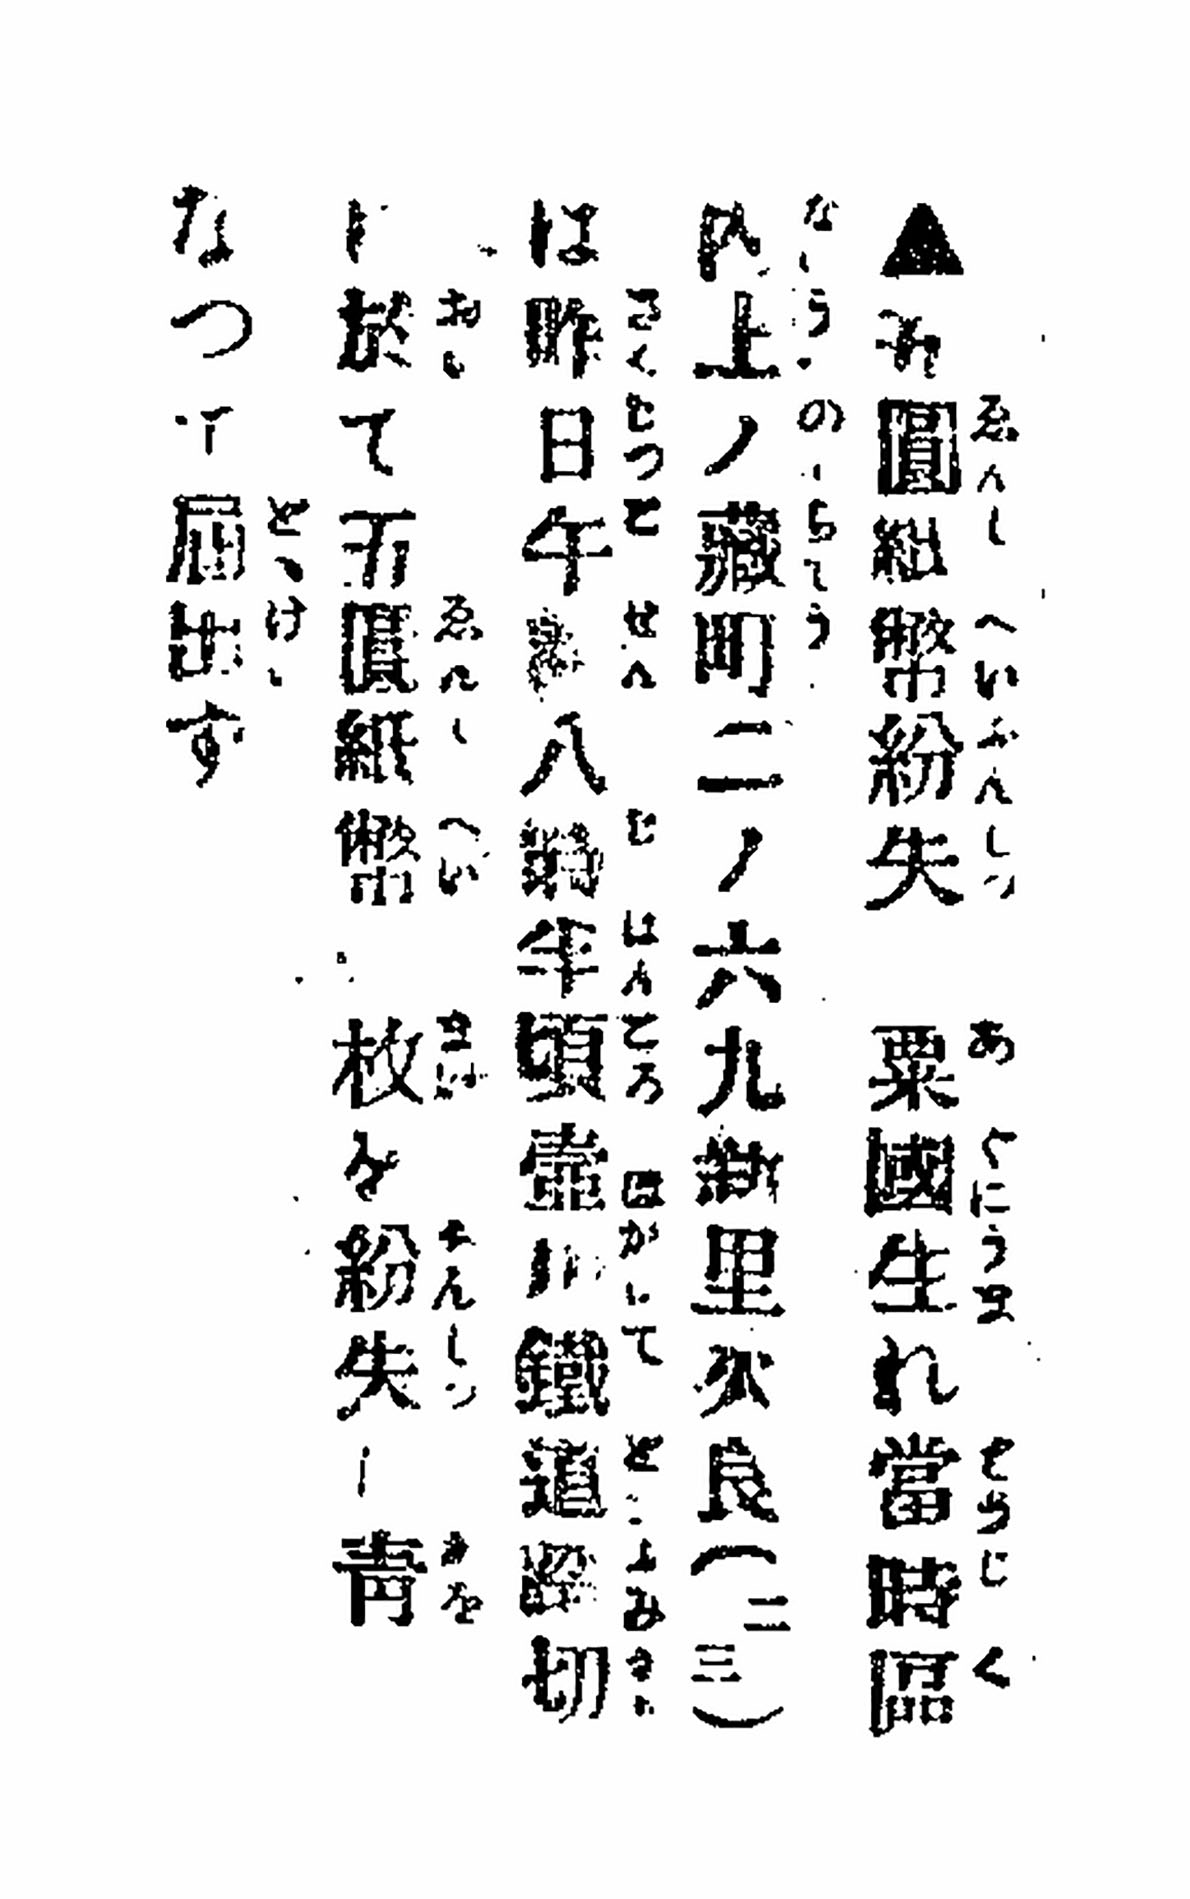 ▲五圓紙幣紛失 粟國生れ當時區
内上ノ藏町二ノ六九新里次良(二三)
は昨日午前八時半頃壺川鐵道踏切
に於て五圓紙幣 枚を紛失し青
なつて届出す